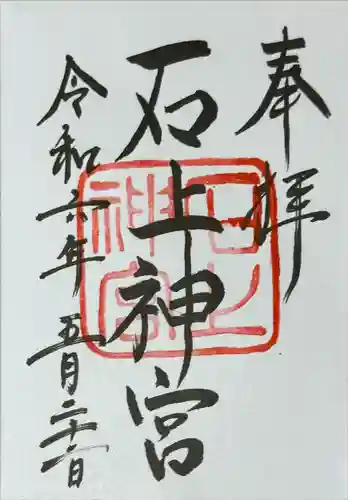 奉拝
石上神宮
令和六年 五月二十六日
石上
神宮